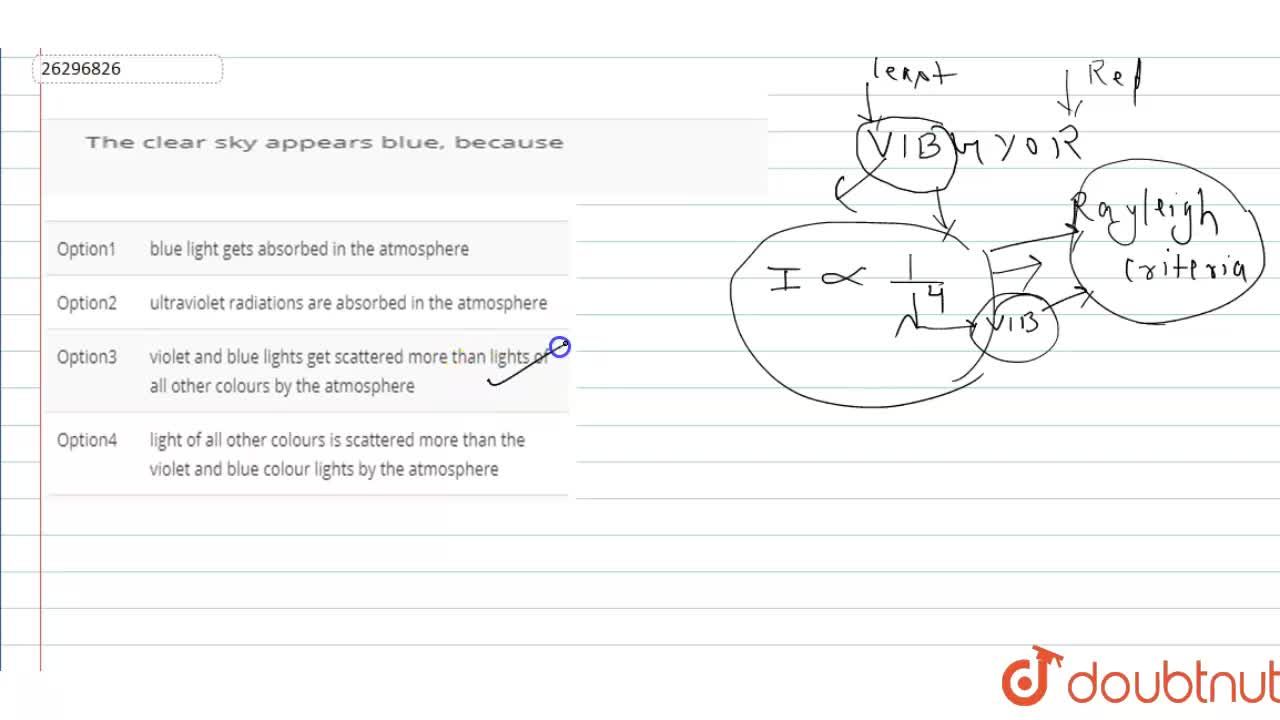 26296826
The clear sky appears blue, because
Option1 blue light gets absorbed in the atmosphere
Option2 ultraviolet radiations are absorbed in the atmosphere
Option3 violet and blue lights get scattered more than lights of
all other colours by the atmosphere
Option4 light of all other colours is scattered more than the
violet and blue colour lights by the atmosphere
VIB Y O R
Rayleigh
criteria
I ∝ 1
4
VIB
doubtnut